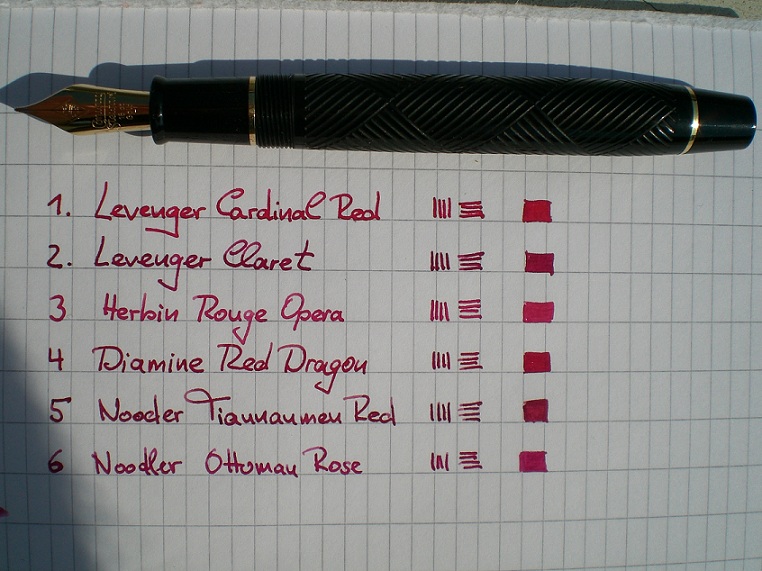 1. Levenger Cardinal Red
2. Levenger Claret
3 Herbin Rouge Opera
4 Diamine Red Dragon
5 Nooder Tiannanmen Red
6 Noodler Ottoman Rose